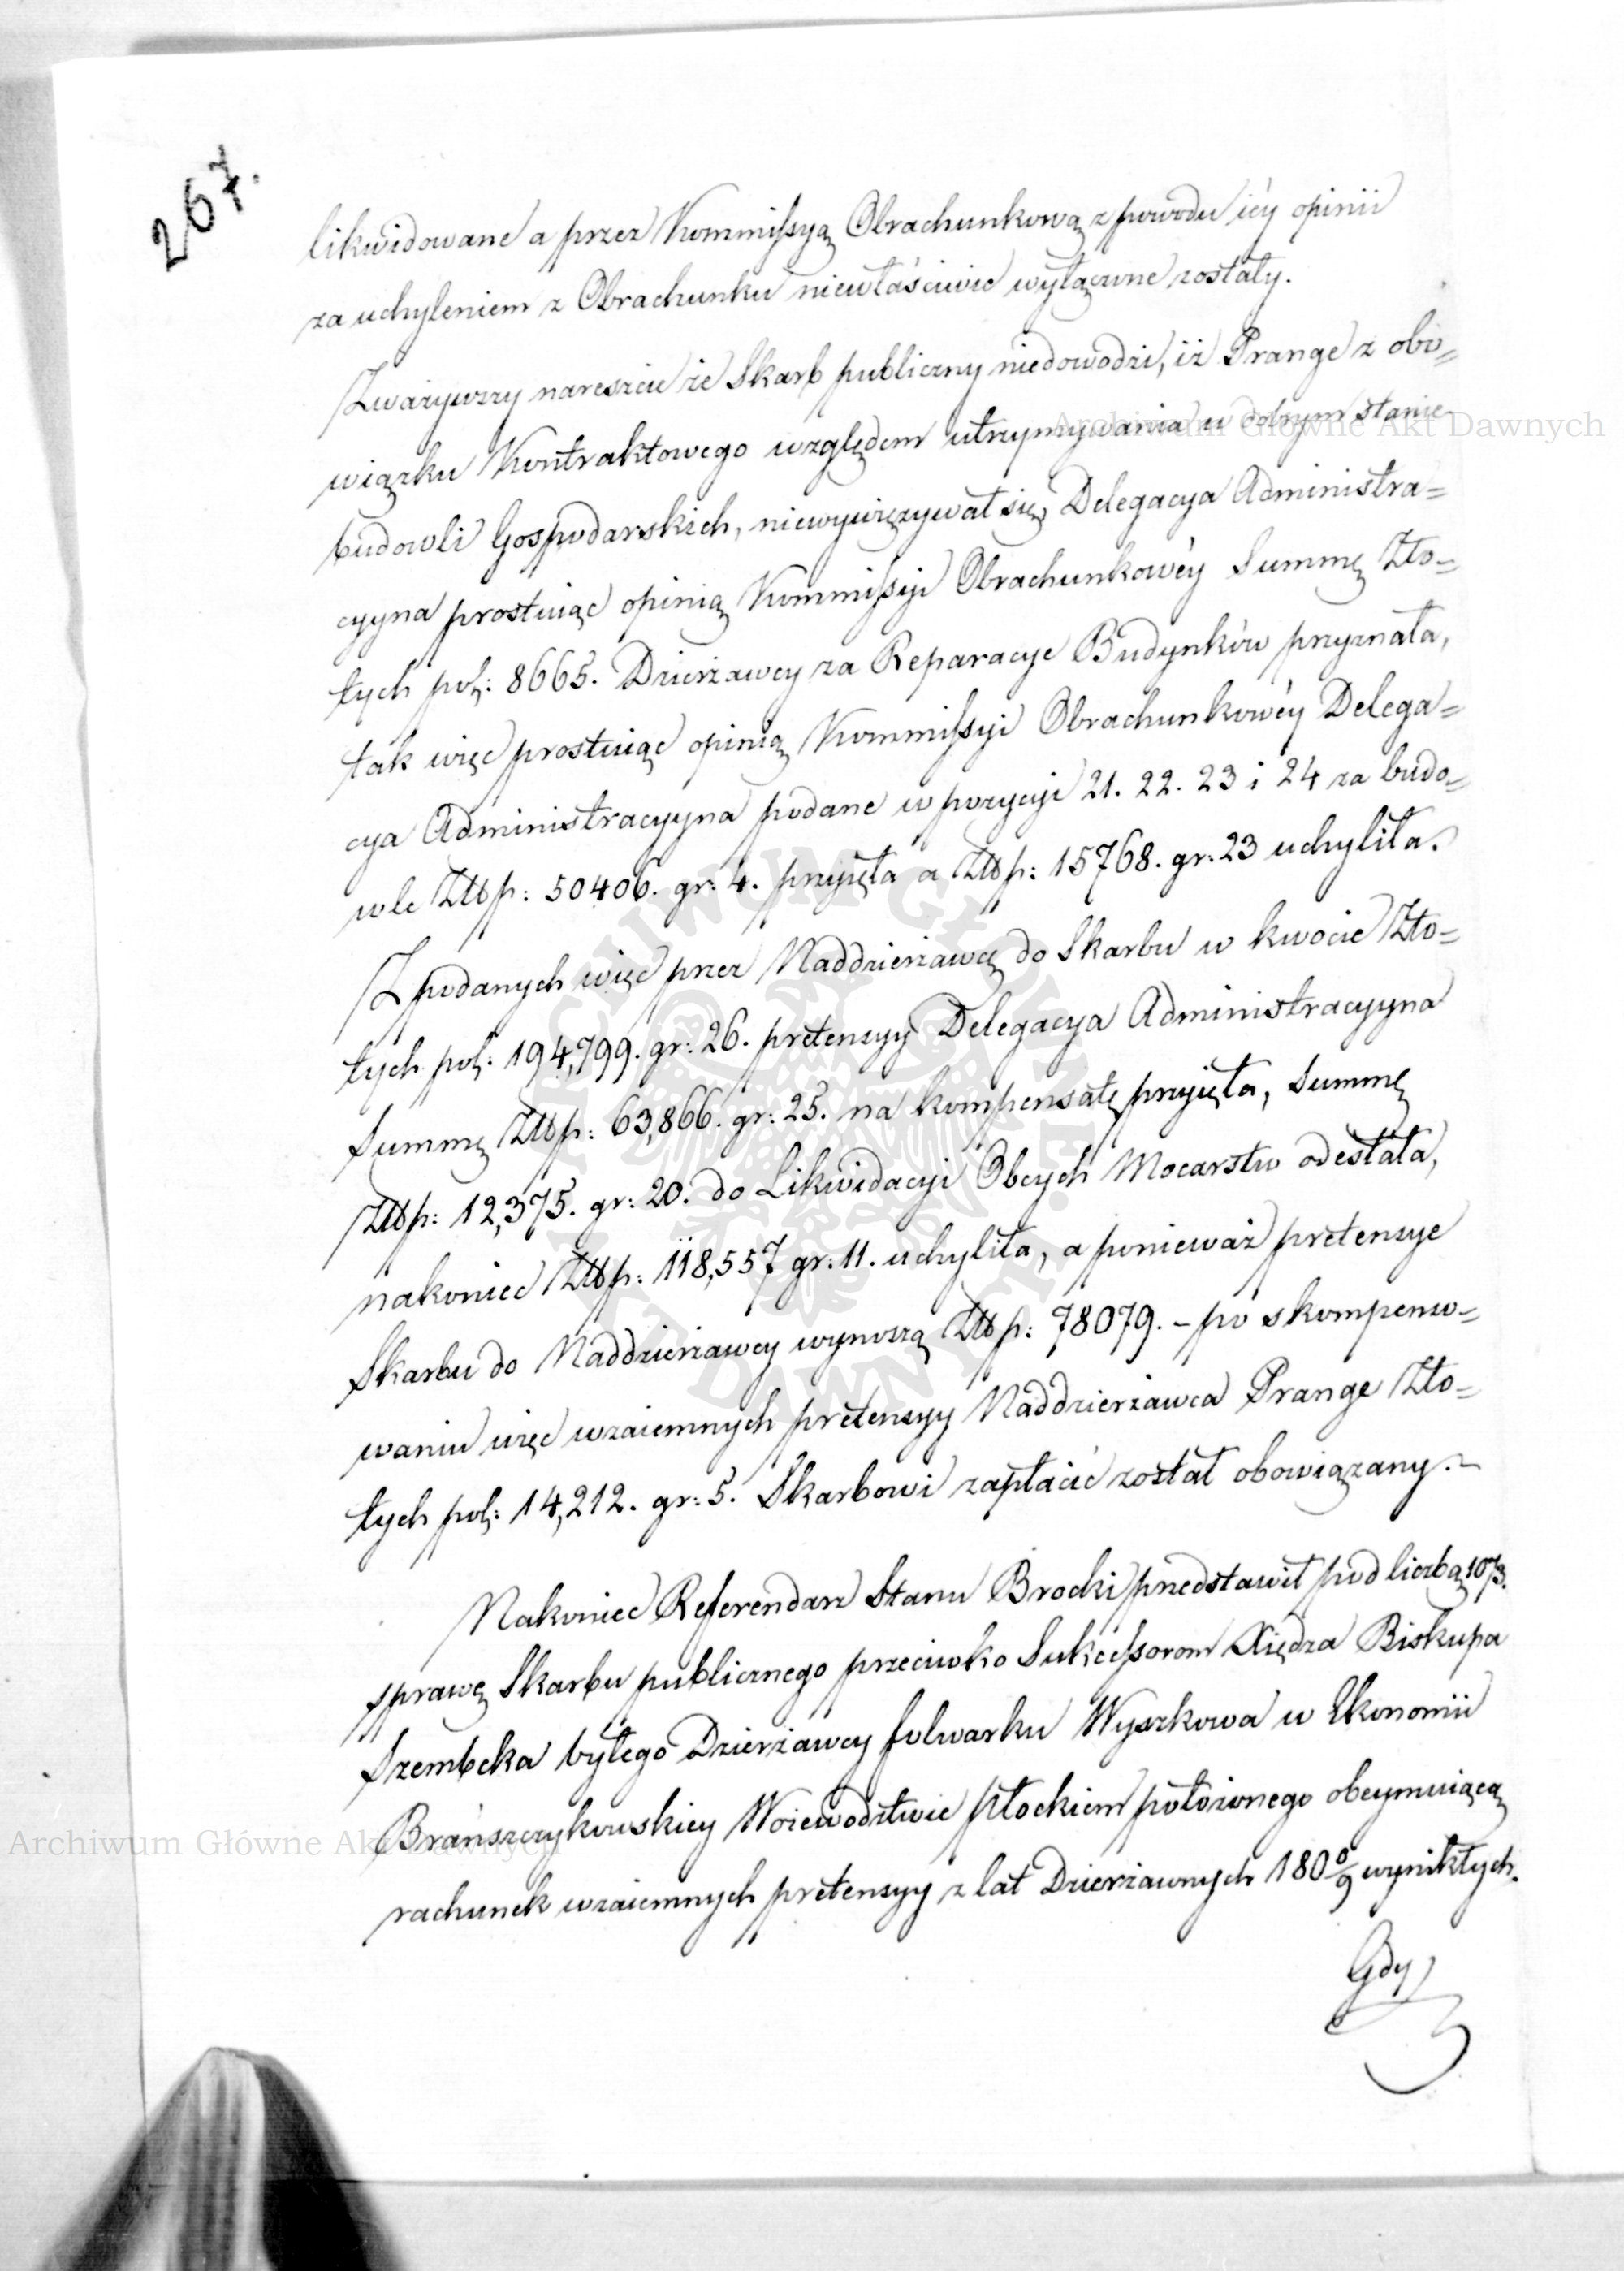 267.
likwidowane a przez Kommissyą Obrachunkową z powodu iéy opinii
za uchyleniem z Obrachunku niewłaściwie wyłączone zostały.
Zważywszy nareszcie że Skarb publiczny niedowodzi, iż Prange z obo=
wiązku Kontraktowego względem utrzymywania w dobrym stanie
budowli Gospodarskich, niewywięzywał się, Delegacya Administra=
cyyna prostuiąc opinią Kommissyi Obrachunkowéy Summę Zło=
tych pol: 8665. Dzierżawcy za Reparacye Budynków przyznała,
tak więc prostuiąc opinią Kommissyi Obrachunkowéy Delega=
cya Administracyyna podane w pozycyi 21. 22. 23 i 24 za budo=
wle Złłp: 50406. gr: 4. przyięła a Złłp: 15768. gr: 23 uchyliła.
Z podanych więc przez Naddzierżawcę do Skarbu w kwocie Zło=
tych pol: 194,799. gr: 26. pretensyy Delegacya Administracyyna
Summę Złłp: 63,866. gr: 25. na kompensatę przyięła, Summę
Złłp: 12,375. gr: 20. do Likwidacyi Obcych Mocarstw odesłała,
nakoniec Złłp: 118,557 gr: 11. uchyliła, a ponieważ pretensye
Skarbu do Naddzierżawcy wynoszą Złłp: 78079. – po skompenso=
waniu więc wzaiemnych pretensyy Naddzierżawca Prange Zło=
tych pol: 14,212. gr: 5. Skarbowi zapłacić został obowiązany. –
Nakoniec Referendarz Stanu Brocki przedstawił pod liczbą 1073.
sprawę Skarbu publicznego przeciwko Sukcessorom Xiędza Biskupa
Szembeka byłego Dzierżawcy folwarku Wyszkowa w Ekonomii
Brańszczykowskiey Woiewodztwie Płockiem położonego obeymuiącą
rachunek wzaiemnych pretensyy z lat Dzierżawnych 180 8/9 wynikłych.
Gdy
Archiwum Główne Akt Dawnych
ARCHIWUM GŁÓWNE AKT DAWNYCH
Archiwum Główne Akt Dawnych